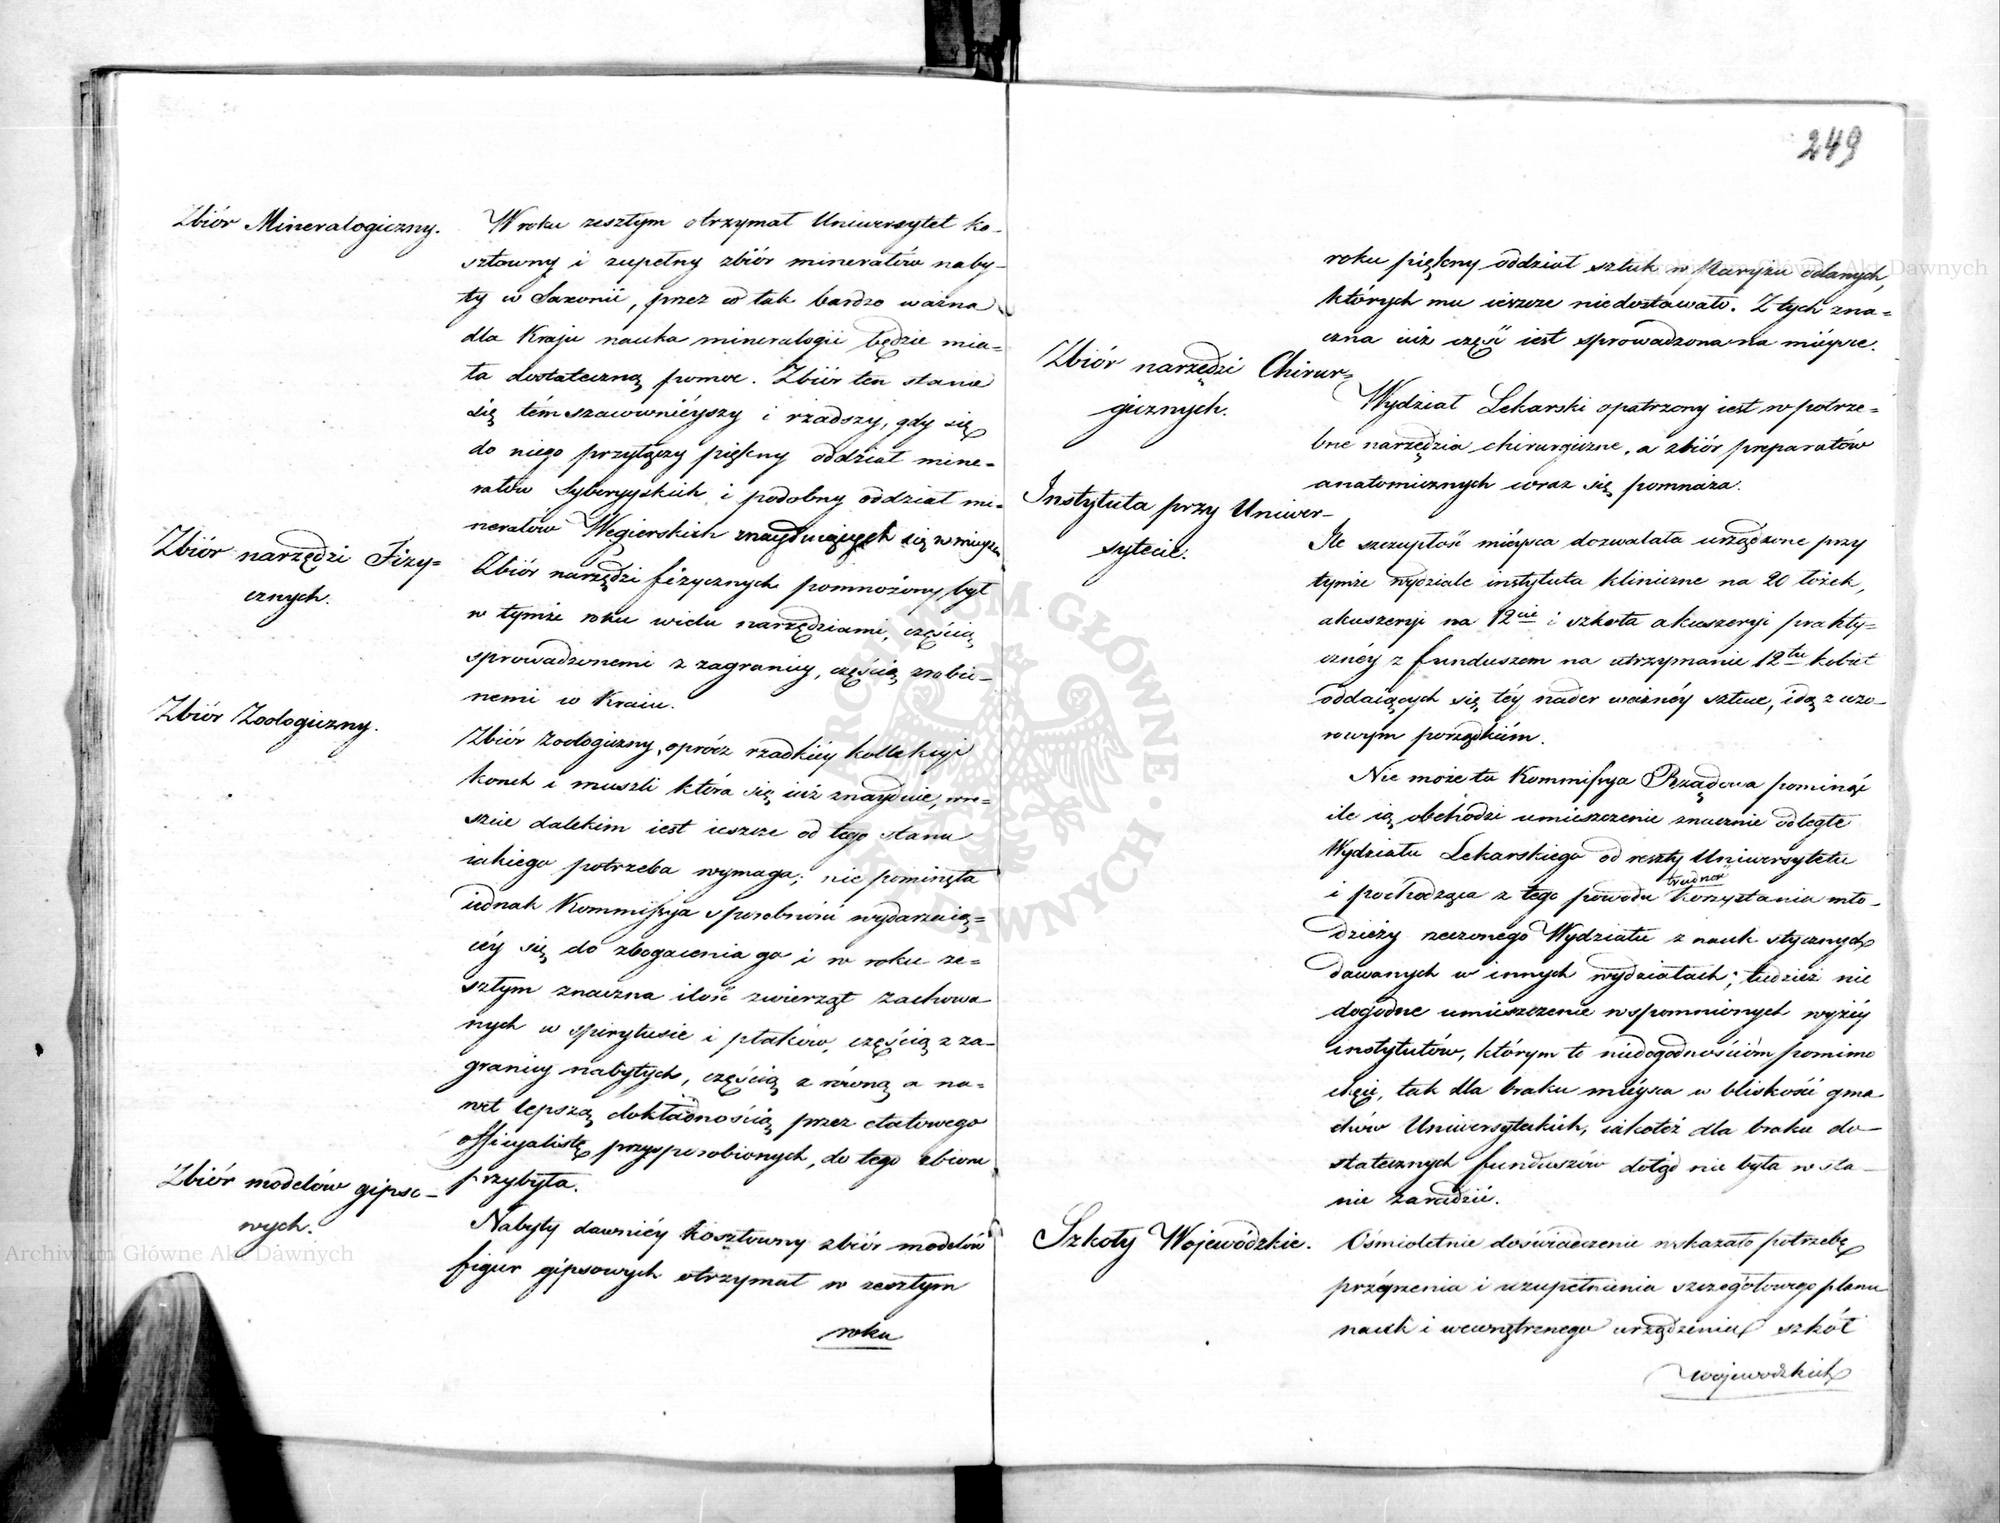 Zbiór Mineralogiczny.
W roku zeszłym otrzymał Uniwersytet ko-
sztowny i zupełny zbiór minerałów naby-
ty w Saxonii, przez co tak bardzo ważna
dla Kraju nauka mineralogii będzie mia-
ła dostateczną pomoc. Zbiór ten stanie
się tém szacownieyszy i rzadszy, gdy się
do niego przyłączy piękny oddział mine-
rałów Syberyyskich i podobny oddział mi-
nerałów Węgierskich znayduiących się w mieyscu
Zbiór narzędzi Fizy-
cznych.
Zbiór narzędzi fizycznych pomnożony był
w tymże roku wielu narzędziami, częścią
sprowadzonemi z zagranicy, częścią zrobio-
nemi w Kraiu.
Zbiór Zoologiczny.
Zbiór zoologiczny, oprócz rzadkiéy kollekcyi
konch i muszli która się iuż znayduie, wre-
szcie dalekim iest ieszcze od tego stanu
iakiego potrzeba wymaga; nie pominęła
iednak Kommissya sposobności wydarzaią-
céy się do zbogacenia go i w roku ze-
szłym znaczna ilość zwierząt zachowa
nych w spirytusie i ptaków, częścią z za-
granicy nabytych, częścią z równą a na-
wet lepszą dokładnością przez etatowego
officyalistę przysposobionych, do tego zbioru
przybyła.
Zbiór modelów gipso-
wych.
Nabyty dawniéy kosztowny zbiór modelów
figur gipsowych otrzymał w zeszłym
roku
249
roku piękny oddział sztuk w Paryżu odlanych,
których mu ieszcze niedostawało. Z tych zna-
czna iuż część iest sprowadzona na mieysce.
Zbiór narzędzi Chirur-
gicznych.
Wydział Lekarski opatrzony iest w potrze-
bne narzędzia chirurgiczne, a zbiór preparatów
anatomicznych coraz się pomnaża.
Instytuta przy Uniwer-
sytecie.
Ile szczupłość mieysca dozwalała urządzone przy
tymże wydziale instytuta kliniczne na 20 łóżek,
akuszeryi na 12cie i szkoła akuszeryi prakty-
cznéy z funduszem na utrzymanie 12tu kobiet
oddaiących się téy nader ważnéy sztuce, idą z wzo-
rowym porządkiem.
Nie może tu Kommissya Rządowa pominąć
ile ią obchodzi umieszczenie znacznie odległe
Wydziału Lekarskiego od reszty Uniwersytetu
trudność
i pochodząca z tego powodu korzystania mło-
dzieży rzeczonego Wydziału z nauk stycznych
dawanych w innych wydziałach; tudzież nie
dogodne umieszczenie wspomnionych wyżéy
instytutów, którym to niedogodnościom pomimo
chęci, tak dla braku mieysca w bliskości gma
chów Uniwersyteckich, iakotéż dla braku do-
statecznych funduszów dotąd nie była w sta-
nie zaradzić.
Szkoły Wojewódzkie.
Ośmioletnie doświadczenie wskazało potrzebę
przéyrzenia i uzupełnienia szczegółowego planu
nauk i wewnętrznego urządzenia szkół
wojewodzkich
Archiwum Główne Akt Dawnych
Archiwum Główne Akt Dawnych
ARCHIWUM GŁÓWNE AKT DAWNYCH